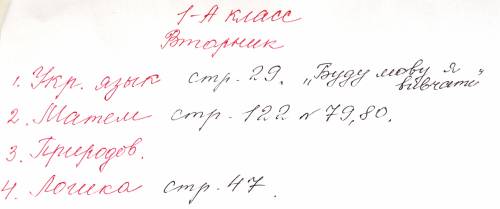 1-А класс
Вторник
1. Укр. язык стр. 29. „Буду мову я вивчати"
2. Матем стр. 122 № 79, 80.
3. Природов.
4. Логика стр. 47.